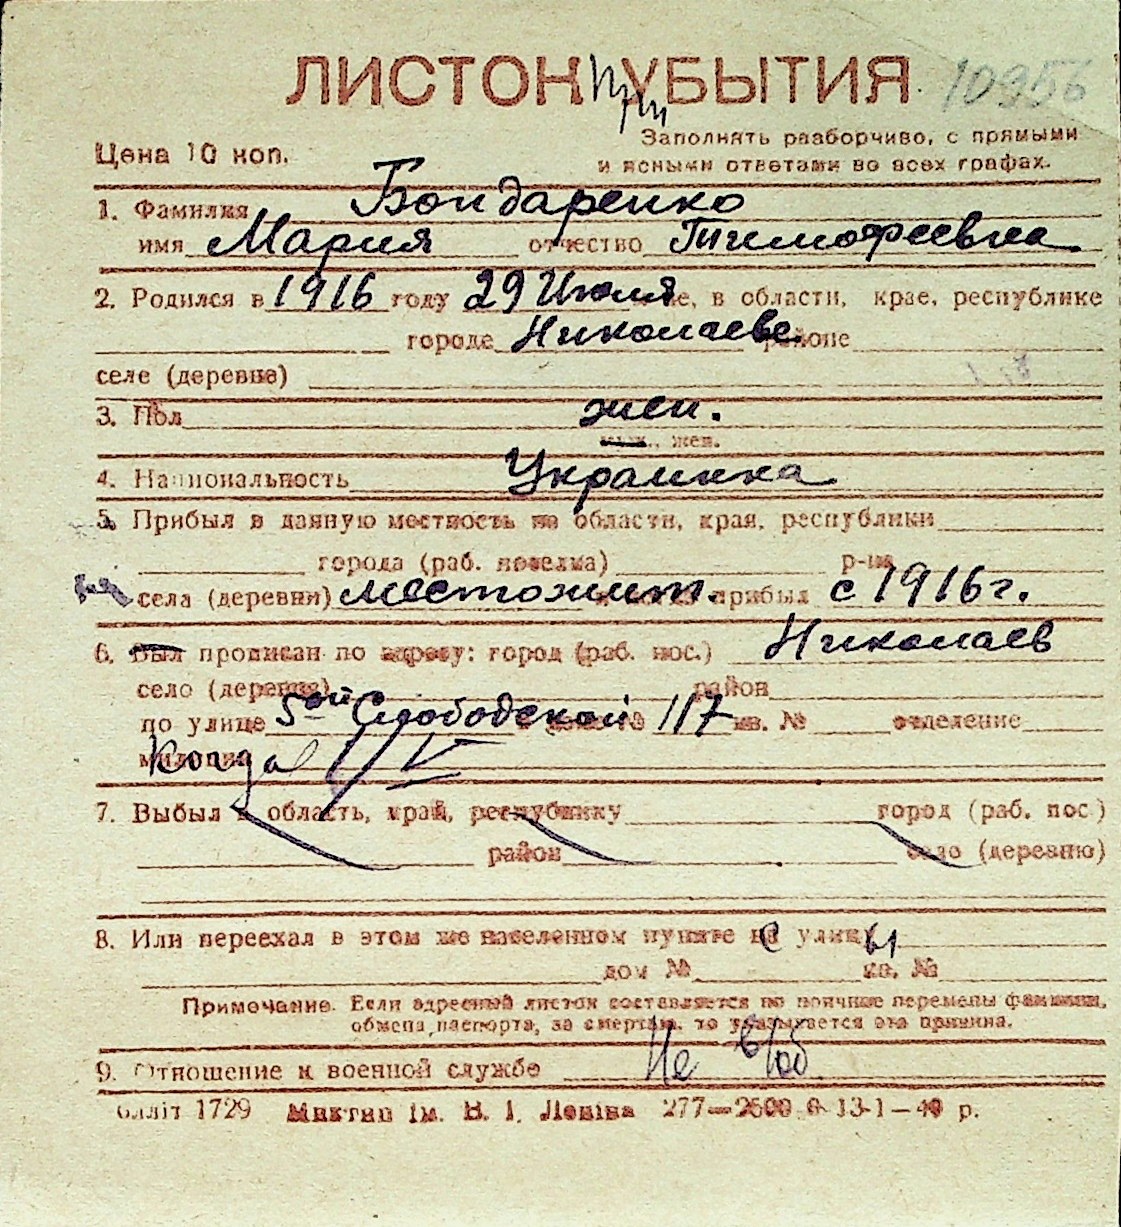 ЛИСТОК УБЫТИЯ 10956
при
Цена 10 коп.
Заполнять разборчиво, с прямыми
и ясными ответами во всех графах.
1. Фамилия Бондаренко
имя Мария отчество Тимофеевна
2. Родился в 1916 году 29 Июля, в области, крае, республике
городе Николаеве районе
селе (деревне)
3. Пол жен.
муж., жен.
4. Национальность Украинка
5. Прибыл в данную местность из области, края, республики
города (раб. поселка) р-на
села (деревни) местожит. прибыл с 1916 г.
6. Был прописан по адресу: город (раб. пос.) Николаев
село (деревня) район
по улице 5ой Слободской 117 кв. № отделение
милиции
7. Выбыл в область, край, республику город (раб. пос.)
район село (деревню)
8. Или переехал в этом же населенном пункте с улицы
дом № кв. №
Примечание. Если адресный листок составляется по причине перемены фамилии,
обмена паспорта, за смертью, то указывается эта причина.
9. Отношение к военной службе Не в/об
блліт 1729 им. В. І. Леніна 277—2500 13-1—40 р.